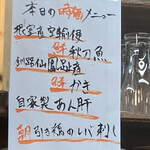 本日の時価メニュー
根室産空輸便
鮮秋刀魚
釧路仙鳳趾産
殻かき
自家製あん肝
朝引き鶏のレバ刺し